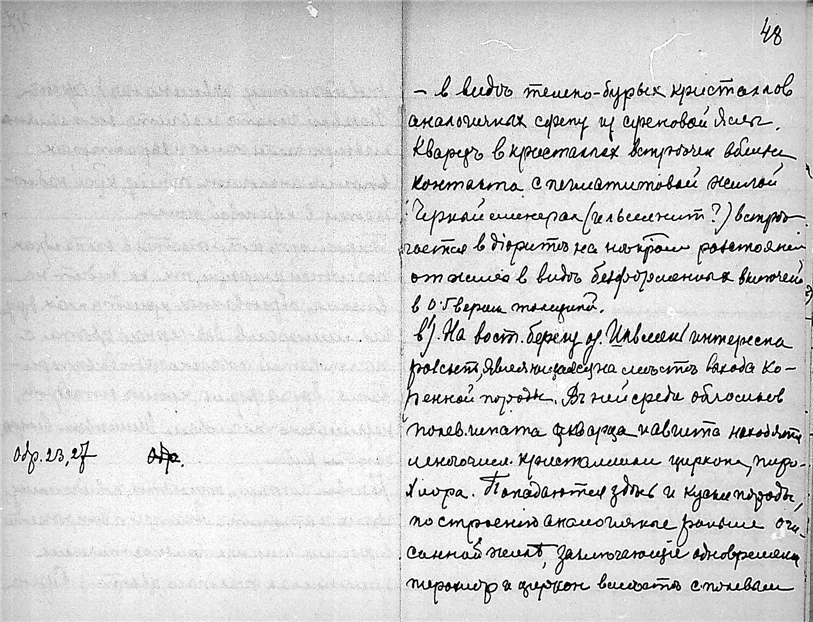 48
– в видѣ темно-бурых кристаллов
аналогичных сфену из сфеновой ямы.
Кварцъ в кристаллах встрѣчен вблизи
контакта с пегматитовой жилой
Черный минерал (ильменит?) встрѣ-
чается в дiоритѣ на нѣкотром разстоянiи
от жилы в видѣ безформенных включенiй
в 0.5 вершк толщиной.
в). На вост. берегу оз. интересна
розсыпь, являющаяся на мѣстѣ выхода ко-
ренной породы. В ней среди обломков
полев. шпата кварца и авгита находятся
многочисл. кристаллики циркона, пиро-
хлора. Попадаются здѣсь и куски породы,
по строенiю аналогичные раньше опи-
санной жилѣ, заключающiе одновременно
пирохлор и циркон вмѣстѣ с полевым
Обр. 23, 27 Обр.